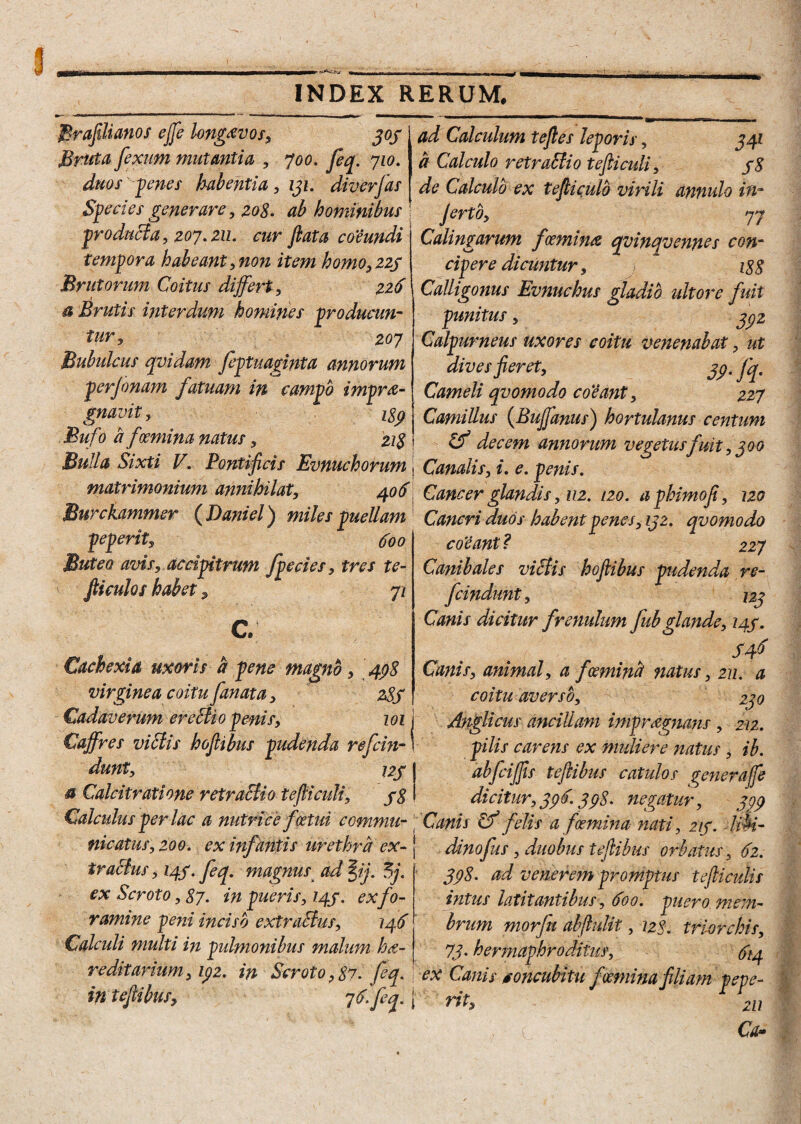 INDEX RERUM.
Brasilianos esse longævos, 305
Bruta sexum mutantia , 700. seq. 710.
duos penes habentia , 131. diversas
Species generare, 208. ab hominibus
producta, 207. 211. cur stata coëundi
tempora habeant, non item homo, 225
Brutorum Coitus differt, 226
a Brutis interdum homines producun-
tur, 207
Bubulcus qvidam septuaginta annorum
personam fatuam in campò impræ-
gnavit, 189
Bufo à fœmina natus , 218
Bulla Sixti V. Pontificis Evnuchorum
matrimonium annihilat, 406
Burckammmer (Daniel) miles puellam
peperit, 600
Buteo avis, accipitrum species, tres te-
sticulos habet , 71
C.
Cachexia uxoris à pene magnò , 498
virginea coitu sanata , 285
Cadaverum erectio penis, 101
Caffres victis hostibus pudenda rescin-
dunt, 125
a Calcitratione retractio testiculi, 58
Calculus per lac a nutrice fœtui commu-
nicatus, 200. ex infantis urethrà ex-
tractus, 145. seq. magnus ad ℥ij. ʒj.
ex Scroto, 87. in pueris, 145. ex fo-
ramine peni incisò extractus, 146
Calculi multi in pulmonibus malum hæ-
reditarium, 192. in Scroto, 87. seq.
in testibus, 76. seq.
ad Calculum testes leporis , 341
à Calculo retractio testiculi, 58
de Calculò ex testiculò virili annulo in-
sertò, 77
Calingarum fœminæ qvinqvennes con-
cipere dicuntur, 188
Calligonus Evnuchus gladiò ultore fuit
punitus , 392
Calpurneus uxores coitu venenabat, ut
dives fieret, 39. sq.
Cameli qvomodo coëant, 227
Camillus (Bussanus) hortulanus centum
& decem annorum vegetus fuit, 300
Canalis, i. e. penis.
Cancer glandis, 112. 120. a phimosi, 120
Cancri duos habent penes, 132. qvomodo
coëant? 227
Canibales victis hostibus pudenda re-
scindunt, 123
Canis dicitur frenulum sub glande, 145.
546
Canis, animal, a fœminà natus, 211. a
coitu aversò, 230
Anglicus ancillam imprægnans , 212.
pilis carens ex muliere natus , ib.
abscissis testibus catulos generasse
dicitur, 396. 398. negatur, 399
Canis & felis a fœmina nati, 215. libi-
dinosus , duobus testibus orbatus, 62.
398. ad venerem promptus testiculis
intus latitantibus, 600. puero mem-
brum morsu abstulit , 128. triorchis,
73. hermaphroditus, 614
ex Canis concubitu fœmina filiam pepe-
rit, 211
Ca-